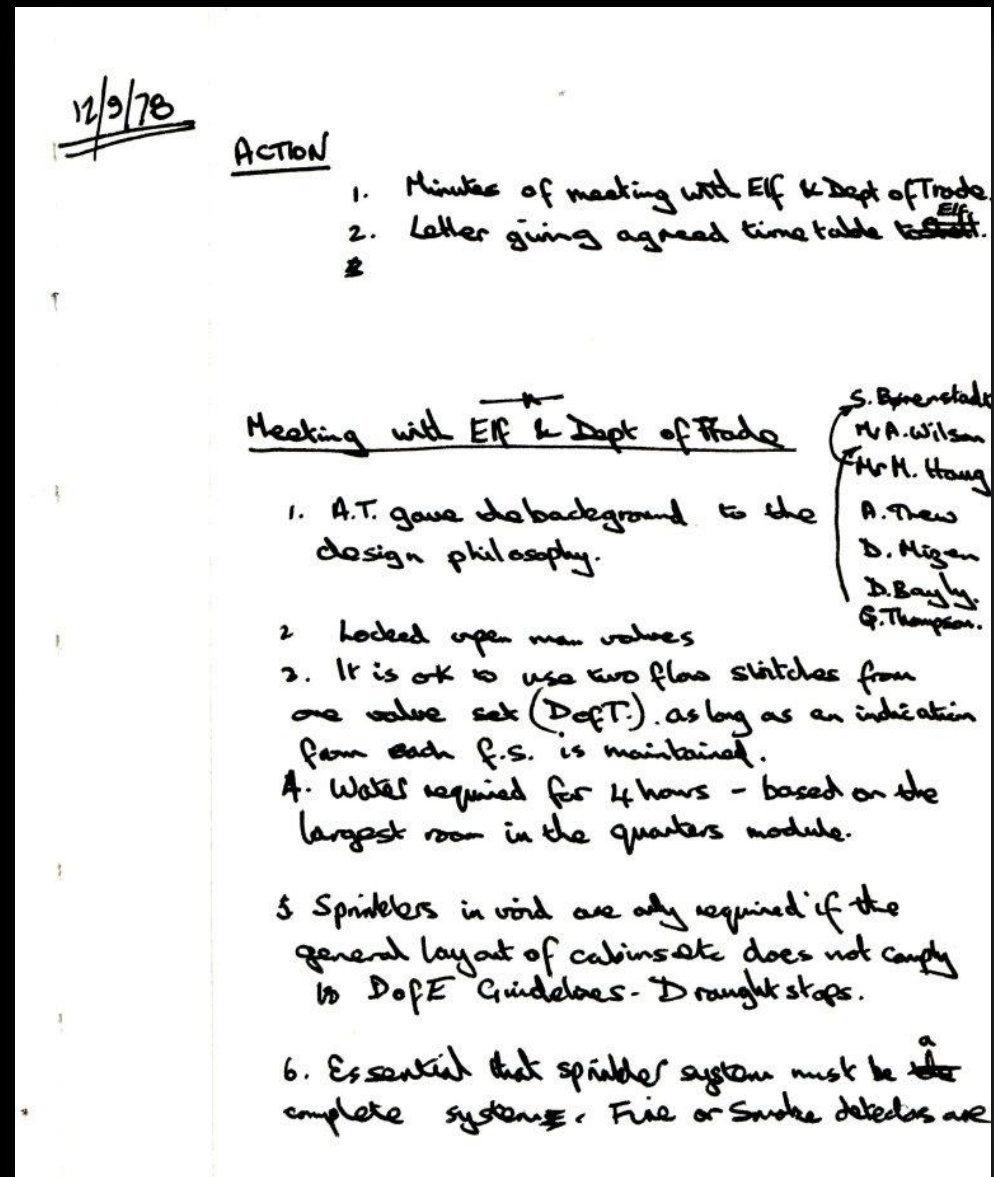 12/9/78
ACTION
1. Minutes of meeting with Elf & Dept of Trade.
2. Letter giving agreed time table Elf.
Meeting with Elf & Dept of Trade
S. Bjrenstadt
Mr A. Wilson
Mr M. Haug
A. Thew
D. Mizen
D. Bayly.
G. Thompson.
1. A.T. gave the background to the
design philosophy.
2 Locked open main valves
3. It is ok to use two flow switches from
one valve set (D of T.) as long as an indication
from each f.s. is maintained.
4. Water required for 4 hours - based on the
largest room in the quarters module.
5 Sprinklers in void are only required if the
general layout of cabins etc does not comply
to D of E Guidelines - Draught stops.
6. Essential that sprinkler system must be a
complete system. Fire or Smoke detectors are